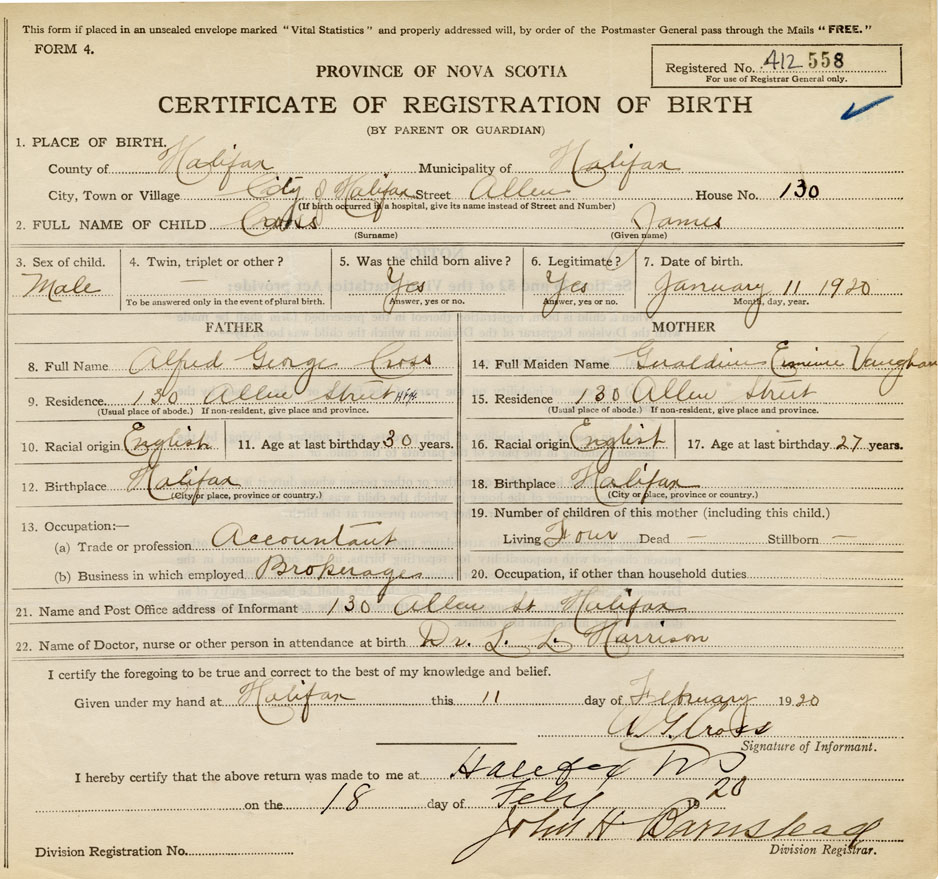 This form if placed in an unsealed envelope marked "Vital Statistics" and properly addressed will, by order of the Postmaster General pass through the Mails "FREE."
FORM 4.
Registered No. 412 558
For use of Registrar General only.
PROVINCE OF NOVA SCOTIA
CERTIFICATE OF REGISTRATION OF BIRTH
(BY PARENT OR GUARDIAN)
1. PLACE OF BIRTH,
County of Halifax Municipality of Halifax
City, Town or Village City of Halifax Street Allen House No. 130
(If birth occurred in a hospital, give its name instead of Street and Number)
2. FULL NAME OF CHILD Cross James
(Surname) (Given name)
3. Sex of child. 4. Twin, triplet or other? 5. Was the child born alive? 6. Legitimate? 7. Date of birth.
Male — Yes Yes January 11 1920
To be answered only in the event of plural birth. Answer, yes or no. Answer, yes or no. Month, day, year.
FATHER MOTHER
8. Full Name Alfred George Cross 14. Full Maiden Name Geraldine Ermine Vaughan
9. Residence. 130 Allen Street Hfx. 15. Residence 130 Allen Street
(Usual place of abode.) If non-resident, give place and province. (Usual place of abode.) If non-resident, give place and province.
10. Racial origin English 11. Age at last birthday 30 years. 16. Racial origin English 17. Age at last birthday 27 years.
12. Birthplace Halifax 18. Birthplace Halifax
(City or place, province or country.) (City or place, province or country.)
13. Occupation:— 19. Number of children of this mother (including this child.)
(a) Trade or profession Accountant Living Four Dead — Stillborn —
(b) Business in which employed Brokerage 20. Occupation, if other than household duties
21. Name and Post Office address of Informant 130 Allen St Halifax
22. Name of Doctor, nurse or other person in attendance at birth Dr. L. L. Harrison
I certify the foregoing to be true and correct to the best of my knowledge and belief.
Given under my hand at Halifax this 11 day of February 1920
A G Cross
Signature of Informant.
I hereby certify that the above return was made to me at Halifax NS
on the 18 day of Feby 1920
John H Barnstead
Division Registration No. Division Registrar.